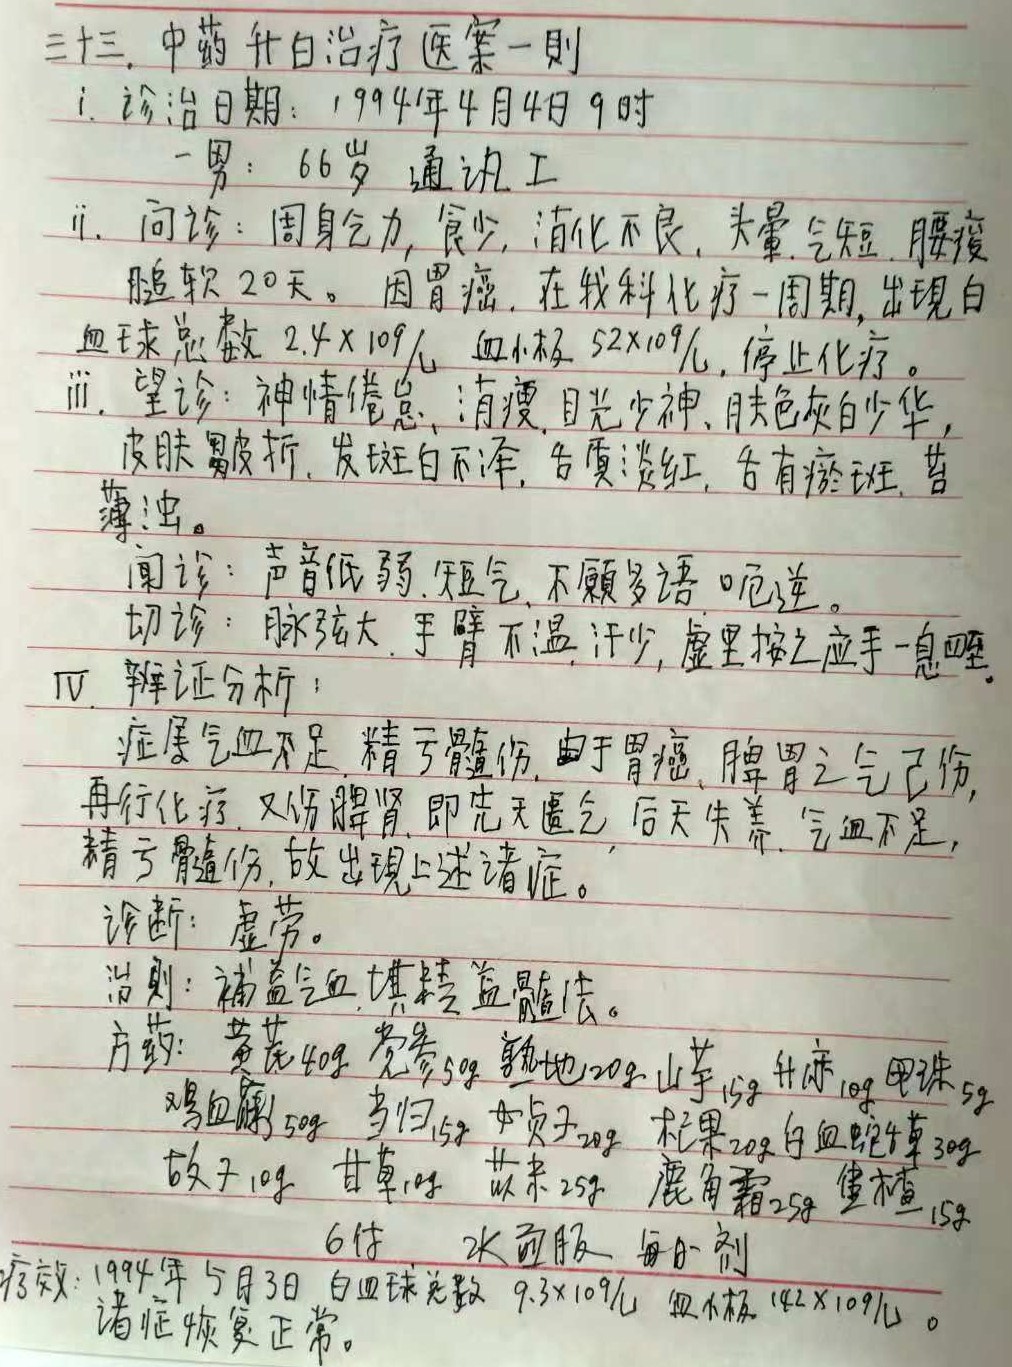 三十三. 中药升白治疗医案一則
i. 诊治日期: 1994年4月4日9时
一男: 66岁 通讯工
ii. 问诊: 周身乏力, 食少, 消化不良、头暈、气短、腰痠
腿软20天。因胃癌、在我科化疗一周期, 出現白
血球总数 2.4×109/L 血小板 52×109/L, 停止化疗。
iii. 望诊: 神情倦怠、消瘦、目光少神、肤色灰白少华,
皮肤皺折、发斑白不泽, 舌质淡红, 舌有瘀斑、苔
薄浊。
闻诊: 声音低弱、短气、不願多语、呃逆。
切诊: 脉弦大、手臂不温、汗少, 虚里按之应手一息四至。
IV. 辨证分析:
症属气血不足, 精亏髓伤, 由于胃癌、脾胃之气已伤,
再行化疗、又伤脾肾, 即先天匮乏, 后天失养、气血不足,
精亏髓伤, 故出現上述诸症。
诊断: 虚劳。
治則: 補益气血, 填精益髓法。
方药: 黄芪40g 党参50g 熟地20g 山芋15g 升麻10g 甲珠5g
鸡血藤50g 当归15g 女贞子20g 杞果20g 白血蛇草30g
故子10g 甘草10g 苡米25g 鹿角霜25g 焦楂15g
6付 水煎服 每日一剂
疗效: 1994年5月3日 白血球总数 9.3×109/L 血小板 142×109/L。
诸症恢复正常。